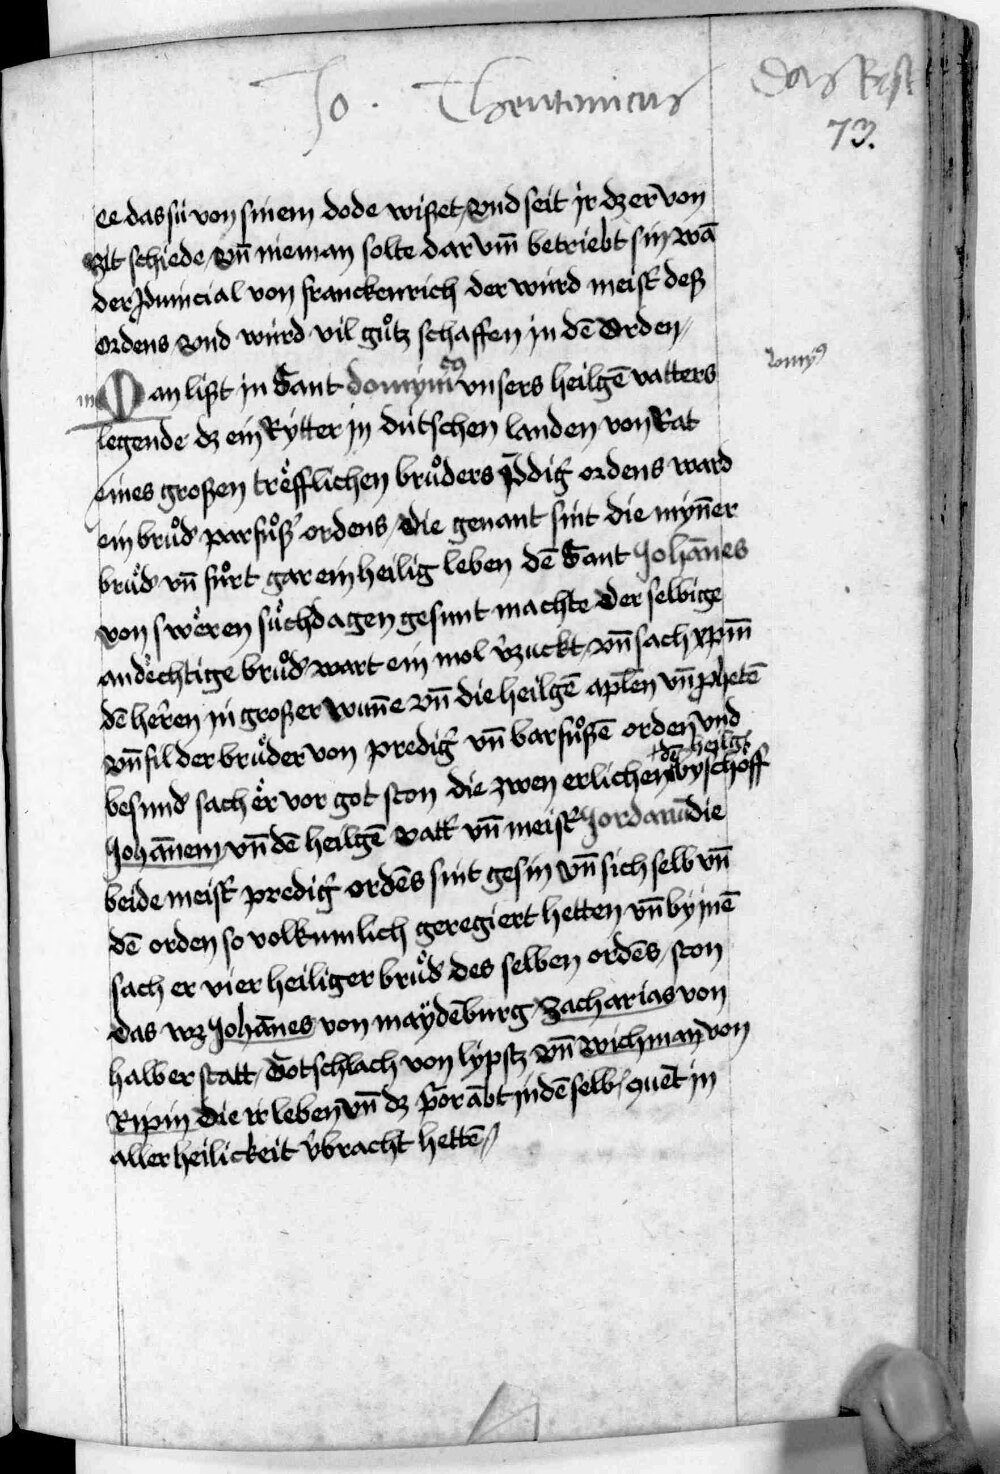 Jo. Theutonicus
Das Best
73.
ee das sú von sinem dode wißet / Vnd seit jr dz er von
zit schiede / vn̄ nieman solte dar vm̄ betriebt sin wā
der ꝓuincial von franckenrich der wúrd meist̉ deß
ordens vnd wúrd vil gůtz schaffen jn dē Orden /
Man lißt in Sant domynicꝰ vnsers heilgē vatters
legende dz ein Rytter jn dútschen landen von Rat
eines großen trëfflichen brůders p̄dig̉ ordens ward
ein brůd̉ parfůß̉ ordens / die genant sint die myn̄er
brůd̉ vn̄ fůrt gar ein heilig leben dē Sant Johānes
von swëren súchdagen gesunt machte Der selbige
andëchtige brůd̉ wart ein mol v̉zuckt / vn̄ sach xpm̄
dē herren in großer wun̄e vn̄ die heilgē aplēn vn̄ ꝓphetē
vn̄ fil der brůder von predig̉ vn̄ barfůßē orden vnd
besund̉ sach ër vor got ston die zwen erlichen dē heilgē byschoff
Johān̄em vn̄ dē heilgē Vatt̉ vn̄ meist̉ Jordanū die
beide meist̉ predig̉ ordēs sint gesin vn̄ sich selb vn̄
dē orden so volkumlich geregiert hetten vn̄ by jnē
sach er vier heiliger brůd̉ des selben ordēs / ston
das wz Johānes von maÿdēburg / Zacharias von
halberstatt / Gotschlach von lypstz vn̄ wichman von
Ripin die ir leben vn̄ dz p̉or ambt jn dē selbē quēt in
aller heilickeit v̉bracht hettē /
domyꝰ